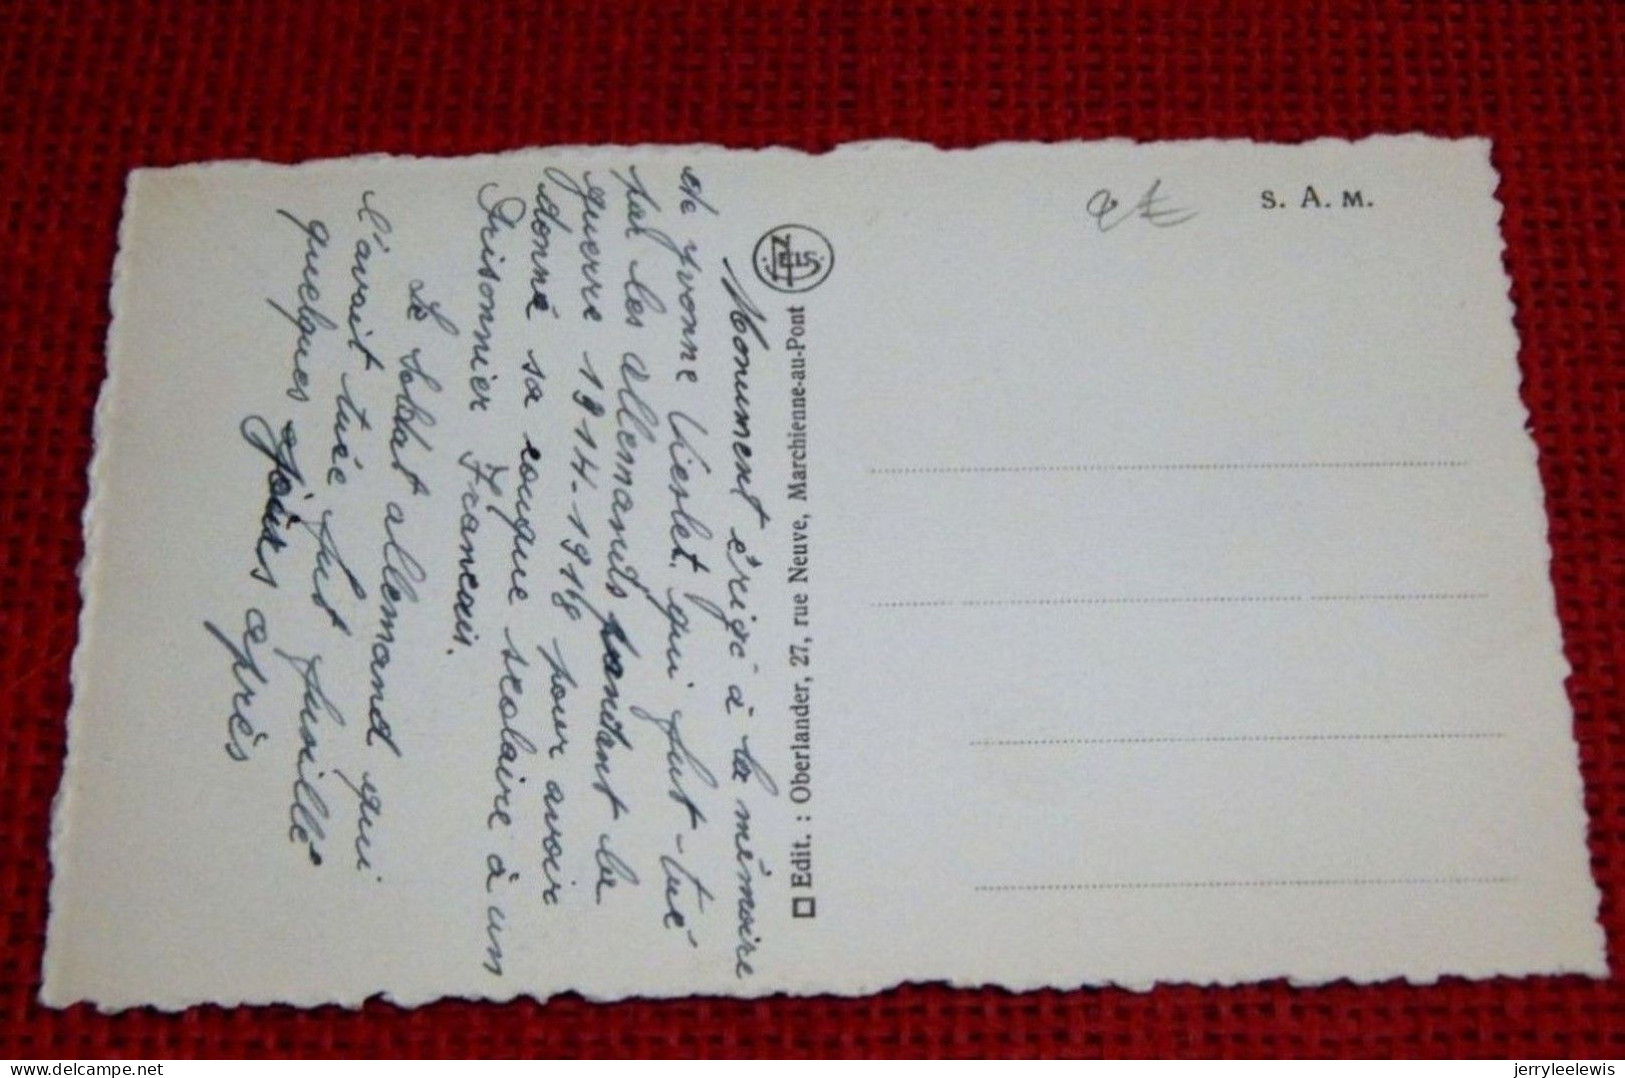 Monument érigé à la mémoire
de Yvonne Vieslet. qui fut-tué
par les allemands pandant la
guerre 1914-1918 pour avoir
donné sa couque scolaire à un
Prisonnier Francais.
Le Soldat allemand qui
l'avait tuée fut fusillé
quelques jours après
NELS
Edit. : Oberlander, 27, rue Neuve, Marchienne-au-Pont
S. A. M.
delcampe.net
jerryleelewis